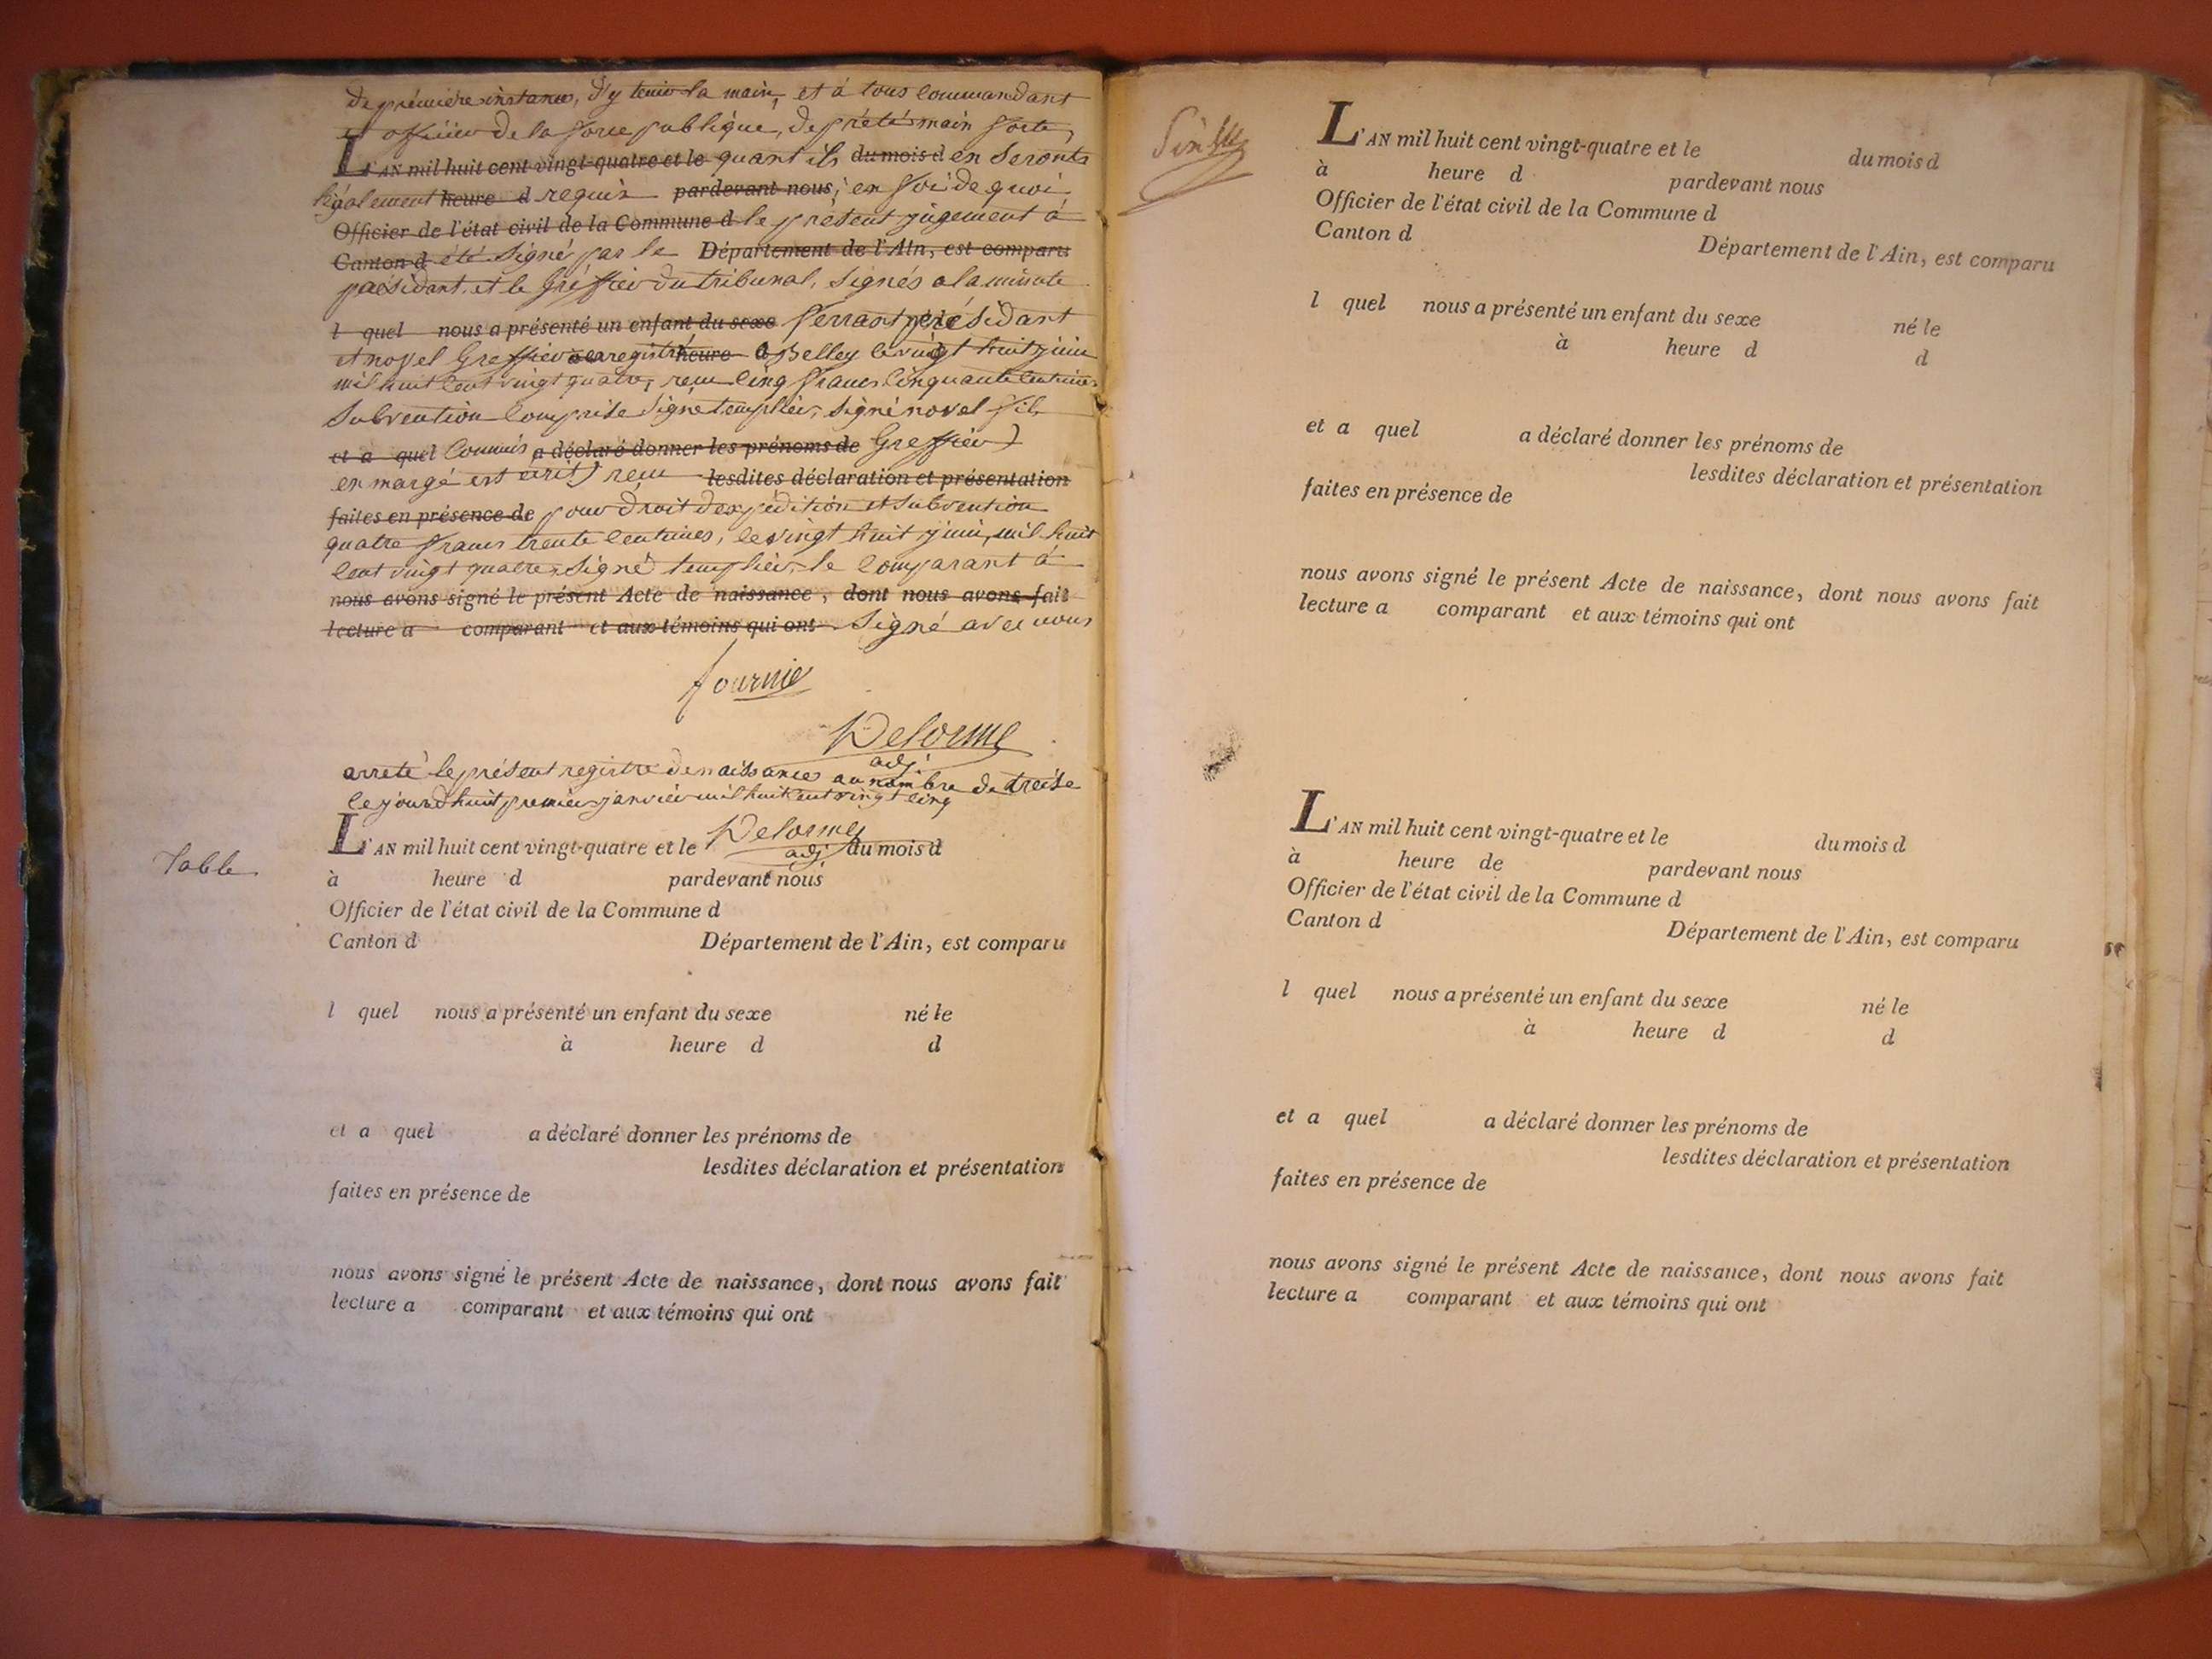 de première instance, d'y tenir la main, et à tous Commandant
et officier de la force publique, de prêté main forte,
L'AN mil huit cent vingt-quatre et le quant ils du mois d en Seronts
légalement heure d requis pardevant nous; en foi de quoi
Officier de l'état civil de la Commune d le présent jugement à
Canton d été Signé par le Département de l'Ain, est comparu
présidant, et le Gréffier du tribunal, Signés a la minute
l quel nous a présenté un enfant du sexe ferrant présidant
et novel Greffier enregistré heure a Belley le vingt huit juin
mil huit Cent vingt quatre, reçu Cinq francs Cinquante Centimes
Subvention Comprise Signé templier, Signé novel fils
et a quel Commis a déclaré donner les prénoms de Greffier)
en margé est écrit) reçu lesdites déclaration et présentation
faites en présence de pour droit d'expédition et Subvention
quatre francs trente Centimes, le vingt huit juin, mil huit
Cent vingt quatre, Signé templier, le Comparant à
nous avons signé le présent Acte de naissance, dont nous avons fait
lecture a comparant et aux témoins qui ont Signé avec nous
fournie
Delorme
adj.
arreté le présent registre de naissances au nombre de treise
le jourdhuit premier janvier mil huit cent vingt cinq
Delorme
adj
L'AN mil huit cent vingt-quatre et le du mois d
Table
à heure d pardevant nous
Officier de l'état civil de la Commune d
Canton d Département de l'Ain, est comparu
l quel nous a présenté un enfant du sexe né le
à heure d d
et a quel a déclaré donner les prénoms de
lesdites déclaration et présentation
faites en présence de
nous avons signé le présent Acte de naissance, dont nous avons fait
lecture a comparant et aux témoins qui ont
L'AN mil huit cent vingt-quatre et le du mois d
à heure d pardevant nous
Officier de l'état civil de la Commune d
Canton d Département de l'Ain, est comparu
l quel nous a présenté un enfant du sexe né le
à heure d d
et a quel a déclaré donner les prénoms de
lesdites déclaration et présentation
faites en présence de
nous avons signé le présent Acte de naissance, dont nous avons fait
lecture a comparant et aux témoins qui ont
L'AN mil huit cent vingt-quatre et le du mois d
à heure de pardevant nous
Officier de l'état civil de la Commune d
Canton d Département de l'Ain, est comparu
l quel nous a présenté un enfant du sexe né le
à heure d d
et a quel a déclaré donner les prénoms de
lesdites déclaration et présentation
faites en présence de
nous avons signé le présent Acte de naissance, dont nous avons fait
lecture a comparant et aux témoins qui ont